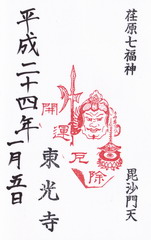 荏原七福神
毘沙門天
開運
厄除
東光寺
平成二十四年一月五日